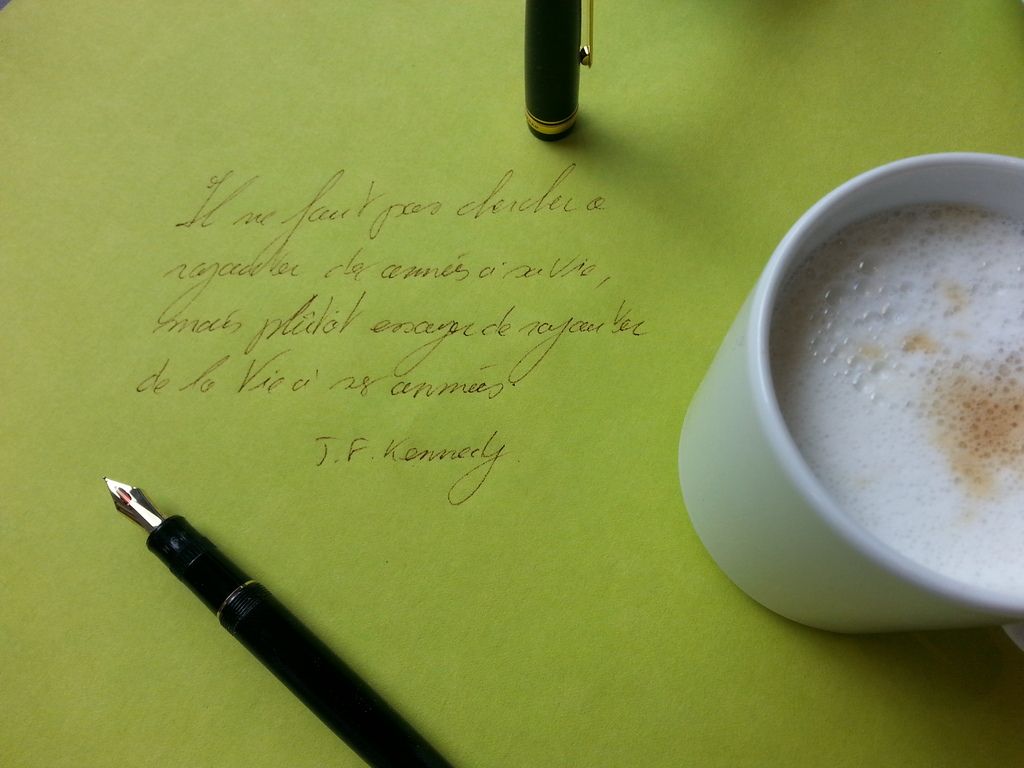 Il ne faut pas chercher a
rajouter des années à sa vie,
mais plûtôt essayer de rajouter
de la Vie à ses années.
J. F. Kennedy.